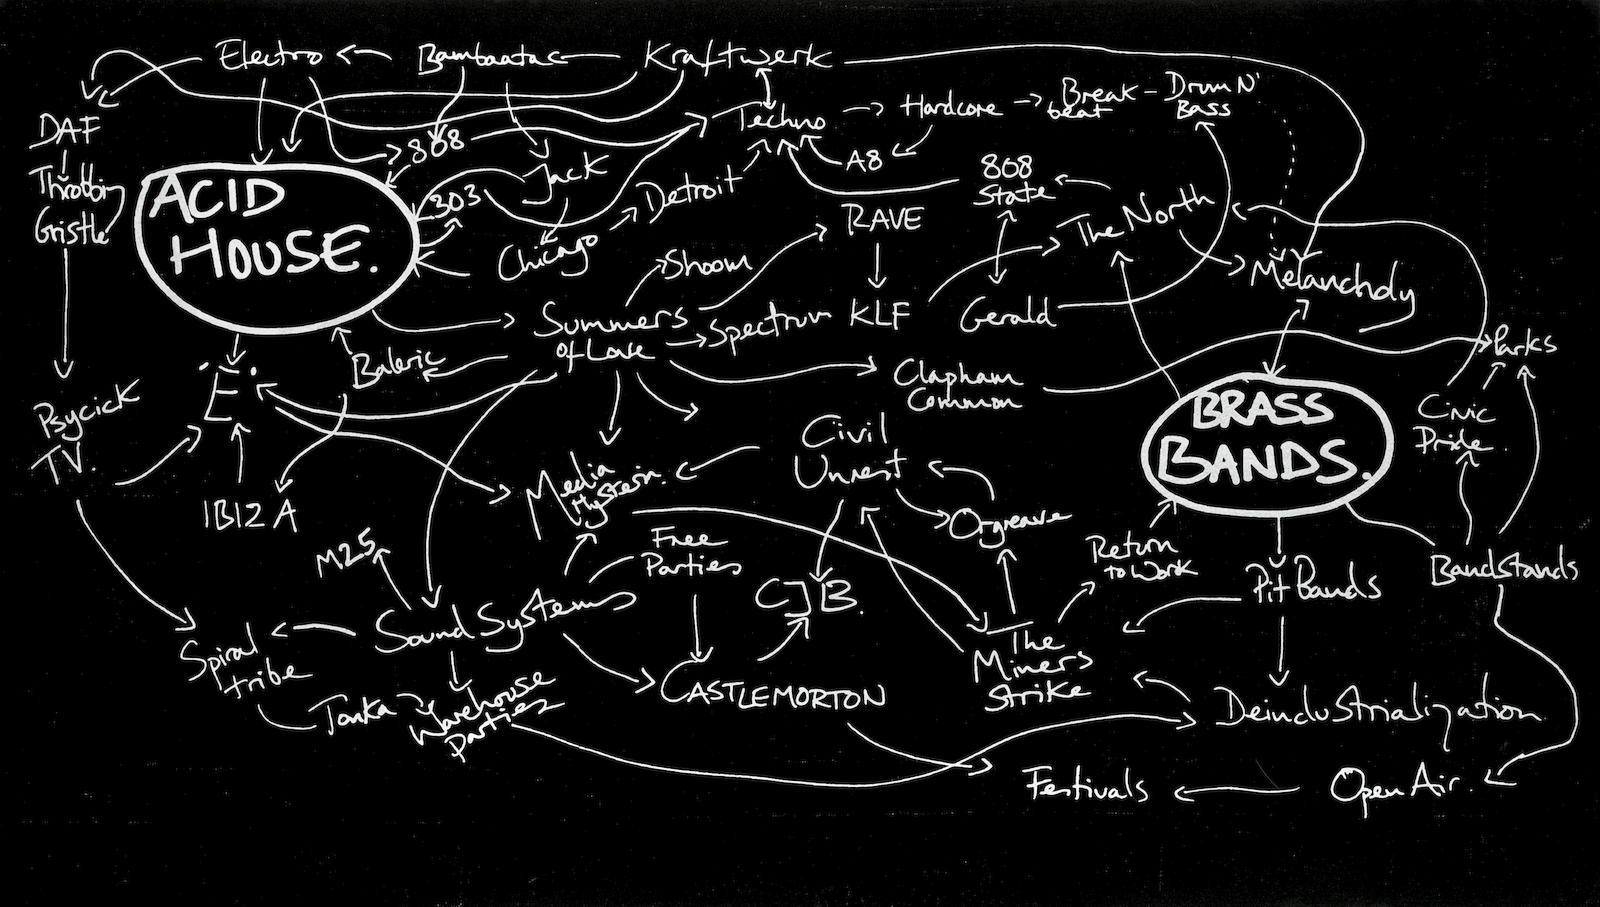 Electro
Bambaata
Kraftwerk
DAF
Throbbing
Gristle
808
Techno
Hardcore
Break
beat
Drum N'
Bass
ACID
HOUSE.
303
Jack
Chicago
Detroit
A8
808
State
The North
RAVE
Shoom
Summers
of Love
Spectrum
KLF
Gerald
Melancholy
Parks
Baleric
'E'
Psycick
TV.
IBIZA
Clapham
Common
BRASS
BANDS.
Civic
Pride.
Civil
Unrest
Media
Hysteria.
Orgreave
M25
Free
Parties
CJB.
Return
to Work
Pit Bands
Bandstands
Sound Systems
Spiral
tribe
Tonka
Warehouse
Parties
CASTLEMORTON
The
Miners
Strike
Deindustrialization
Festivals
Open Air.